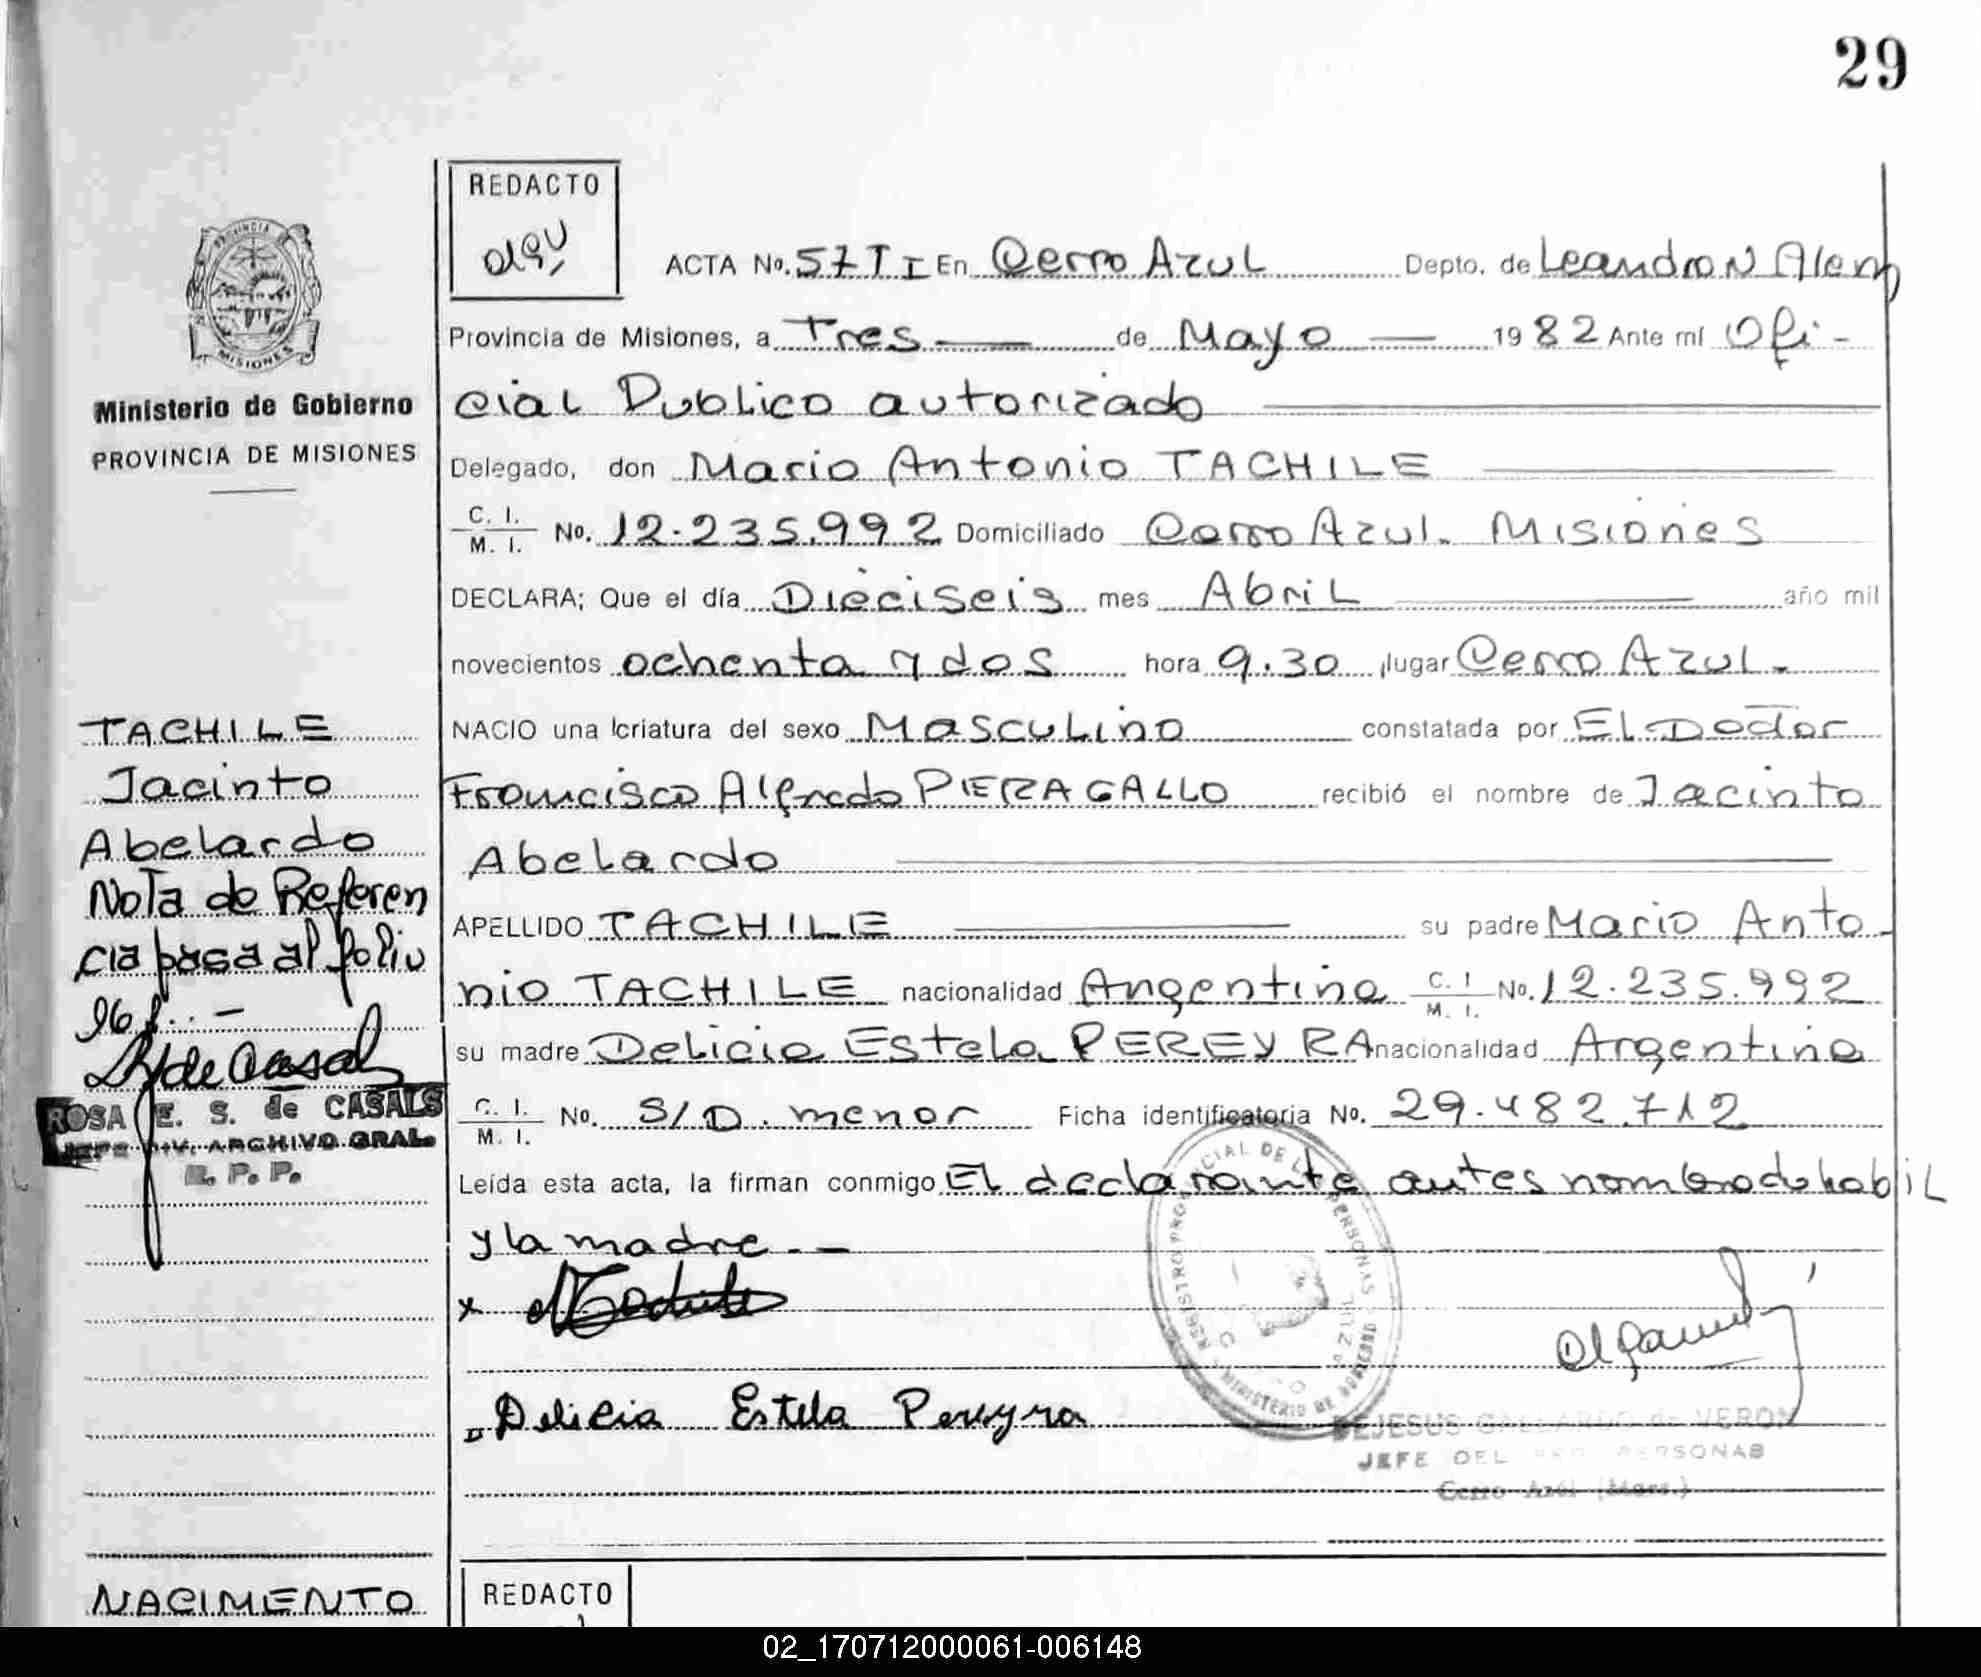 29
REDACTO
ACTA No. 57 T I En Cerro Azul Depto. de Leandro N Alem
Provincia de Misiones, a Tres de Mayo 1982 Ante mí Ofi-
cial Publico autorizado
Delegado, don Mario Antonio TACHILE
C. I. M. I. No. 12.235.992 Domiciliado Cerro Azul. Misiones
DECLARA; Que el día Dieciseis mes Abril año mil
novecientos ochenta y dos hora 9.30 lugar Cerro Azul.
NACIO una criatura del sexo Masculino constatada por El Doctor
Francisco Alfredo PIERAGALLO recibió el nombre de Jacinto
Abelardo
APELLIDO TACHILE su padre Mario Anto-
nio TACHILE nacionalidad Argentina C. I. M. I. No. 12.235.992
su madre Delicia Estela PEREYRA nacionalidad Argentina
C. I. M. I. No. S/D. menor Ficha identificatoria No. 29.482.712
Leída esta acta, la firman conmigo El declarante antes nombrado habil
y la madre.-
x
Delicia Estela Pereyra
DEJESUS GALLARDO de VERON
JEFE DEL REG. PERSONAS
Cerro Azul (Mnes.)
PROVINCIA
MISIONES
Ministerio de Gobierno
PROVINCIA DE MISIONES
TACHILE
Jacinto
Abelardo
Nota de Referen
cia pasa al folio
96
ROSA E. S. de CASALS
JEFE DIV. ARCHIVO GRAL.
R. P. P.
NACIMENTO
REDACTO
02_170712000061-006148